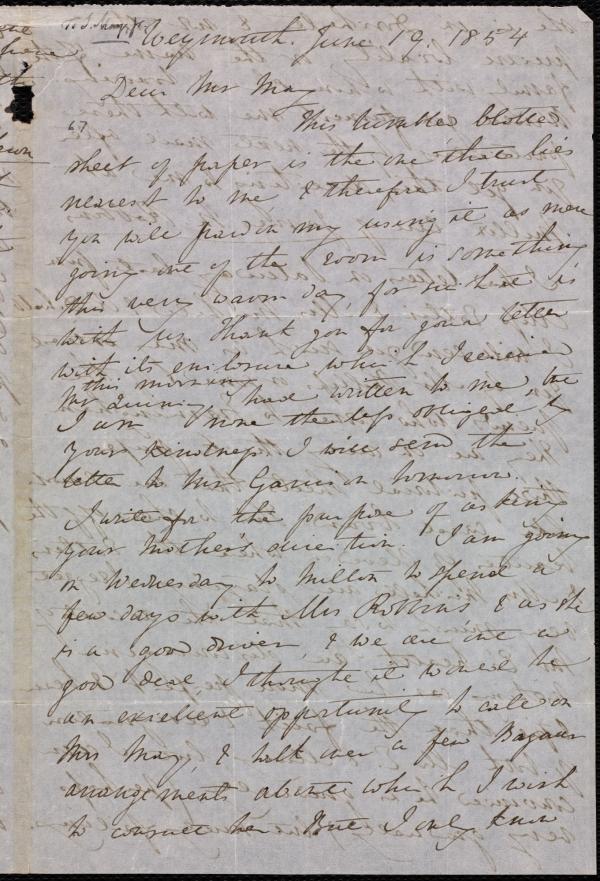 Weymouth. June 19. 1854
Dear Mr May
This humble blotted
sheet of paper is the one that lies
nearest to me & therefore I trust
you will pardon my using it as mere
going out of the room is something
this very warm day, for such it is
with us. Thank you for your letter
with its enclosure which I received
this morning
Mr Quincy had written to me, but
I am none the less obliged by
your kindness I will send the
letter to Mr Garrison tomorrow.
I write for the purpose of asking
your mother's direction. I am going
on Wednesday to Milton to spend a
few days with Mrs Robbins & as she
is a good driver, & we are out a
good deal I thought it would be
an excellent opportunity to call on
Mrs May, & talk over a few Bazaar
arrangements about which I wish
to consult her But I only know